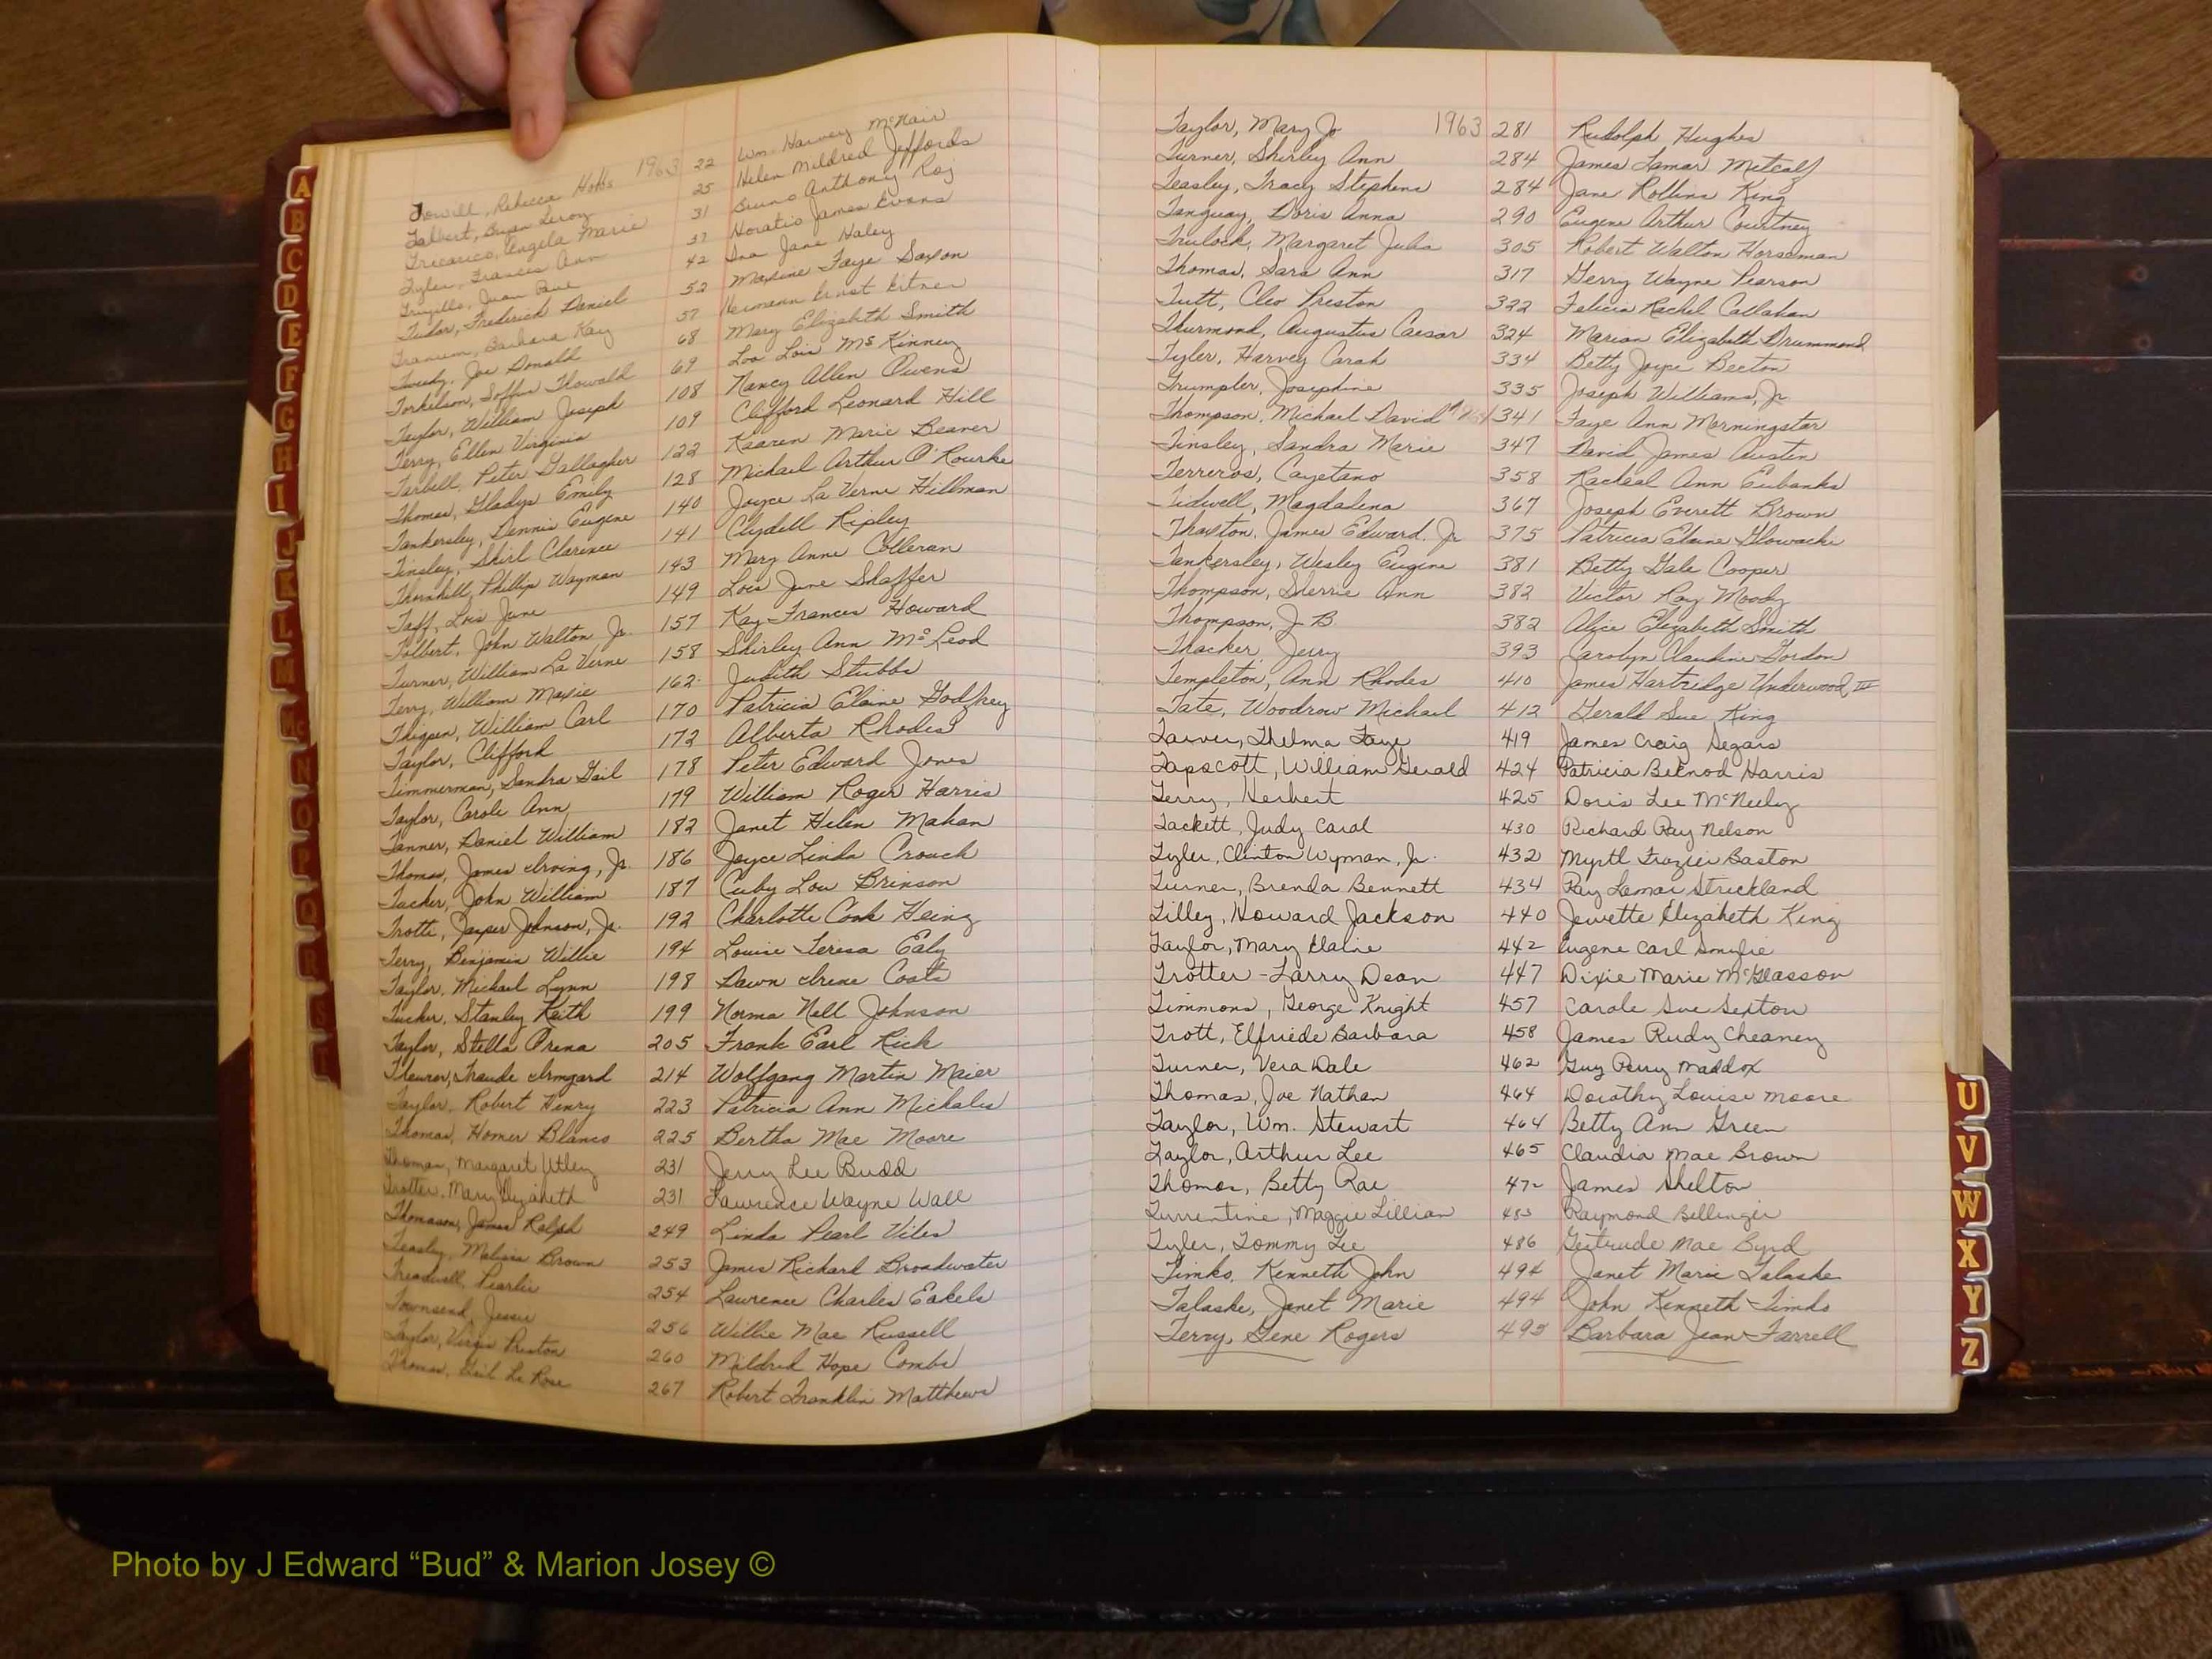 Towill, Rebecca Hobbs 1963 22 Wm. Harvey McNair
Talbert, Bryan Leroy 25 Helen Mildred Jeffords
Tricarico, Angela Marie 31 Bruno Anthony Roj
Tyler, Frances Ann 37 Horatio James Evans
Trujillo, Juan 42 Ina Jane Haley
Tudor, Frederick Daniel 52 Maxine Faye Saxon
Tranum, Barbara Kay 57 Hermann Ernst Kitner
Tweedy, Joe Donald 68 Mary Elizabeth Smith
Torkilson, Soffus Thowald 69 Loo Lois McKinney
Taylor, William Joseph 108 Nancy Allen Owens
Terry, Ellen Virginia 109 Clifford Leonard Hill
Tarbell, Peter Gallagher 122 Kaaren Marie Beaver
Thomas, Gladys Emily 128 Michael Arthur O'Rourke
Tankersley, Dennis Eugene 140 Joyce La Verne Hillman
Tinsley, Shirl Clarence 141 Clydell Ripley
Thornhill, Phillip Wayman 143 Mary Anne Colleran
Taff, Lois June 149 Lois June Shaffer
Tolbert, John Walton Jr. 157 Kay Frances Howard
Turner, William La Verne 158 Shirley Ann McLeod
Terry, William Maxie 162 Judith Stubbs
Thigpen, William Carl 170 Patricia Elaine Godfrey
Taylor, Clifford 172 Alberta Rhodes
Timmerman, Sandra Gail 178 Peter Edward Jones
Taylor, Carole Ann 179 William Roger Harris
Tanner, Daniel William 182 Janet Helen Mahan
Thomas, James Irving, Jr. 186 Joyce Linda Crouch
Tucker, John William 187 Cuby Lou Brinson
Trotti, Jasper Johnson, Jr. 192 Charlotte Cook Heinz
Terry, Benjamin Willie 194 Louise Teresa Ealy
Taylor, Michael Lynn 198 Dawn Irene Coats
Tucker, Stanley Keith 199 Norma Nell Johnson
Taylor, Stella Orena 205 Frank Earl Rick
Theurer, Traude Irmgard 214 Wolfgang Martin Maier
Taylor, Robert Henry 223 Patricia Ann Michales
Thomas, Homer Blanco 225 Bertha Mae Moore
Thoman, Margaret Utley 231 Jerry Lee Budd
Trotter, Mary Elizabeth 231 Lawrence Wayne Wall
Thomason, James Ralph 249 Linda Pearl Viles
Teasley, Melissa Brown 253 James Richard Broadwater
Treadwell, Pearlie 254 Lawrence Charles Eakels
Townsend, Jessie 256 Willie Mae Russell
Taylor, Virgis Preston 260 Mildred Hope Combs
Thomas, Gail La Rose 267 Robert Franklin Matthews
A
B
C
D
E
F
G
H
I
J
K
L
M
Mc
N
O
P
Q
R
S
T
Taylor, Mary Jo 1963 281 Rudolph Hughes
Turner, Shirley Ann 284 James Lamar Metcalf
Teasley, Tracy Stephens 284 Jane Rollins King
Tanguay, Doris Anna 290 Eugene Arthur Courtney
Trulock, Margaret Julia 305 Robert Walton Horseman
Thomas, Sara Ann 317 Gerry Wayne Pearson
Tutt, Cleo Preston 322 Felicia Rachel Callahan
Thurmond, Augustus Caesar 324 Marion Elizabeth Drummond
Tyler, Harvey Carah 334 Betty Joyce Beeton
Trumpler, Josephine 335 Joseph Williams, Jr.
Thompson, Michael David 341 Faye Ann Morningstar
Tinsley, Sandra Marie 347 David James Austin
Terreros, Cayetano 358 Racheal Ann Eubanks
Tidwell, Magdalena 367 Joseph Everett Brown
Thaxton, James Edward, Jr. 375 Patricia Elaine Glowacki
Tankersley, Wesley Eugene 381 Betty Gale Cooper
Thompson, Sherrie Ann 382 Victor Ray Moody
Thompson, J B 382 Alice Elizabeth Smith
Thacker, Jerry 393 Carolyn Claudine Gordon
Templeton, Ann Rhodes 410 James Hartridge Underwood, III
Tate, Woodrow Michael 412 Gerald Sue King
Tarver, Thelma Faye 419 James Craig Segars
Tapscott, William Gerald 424 Patricia Beknod Harris
Terry, Herbert 425 Doris Lee McNeely
Tackett, Judy Carol 430 Richard Ray Nelson
Tyler, Clinton Wyman, Jr. 432 Myrtl Frazier Baston
Turner, Brenda Bennett 434 Ray Lamar Strickland
Tilley, Howard Jackson 440 Jewette Elizabeth King
Taylor, Mary Elaine 442 Eugene Carl Smylie
Trotter - Larry Dean 447 Dixie Marie McGlasson
Timmons, George Knight 457 Carole Sue Sexton
Trott, Elfriede Barbara 458 James Rudy Cheaney
Turner, Vera Dale 462 Guy Perry Maddox
Thomas, Joe Nathan 464 Dorothy Louise Moore
Taylor, Wm. Stewart 464 Betty Ann Green
Taylor, Arthur Lee 465 Claudia Mae Brown
Thomas, Betty Rae 472 James Shelton
Turrentine, Maggie Lillian 483 Raymond Bellinger
Tyler, Tommy Lee 486 Gertrude Mae Byrd
Timko, Kenneth John 494 Janet Marie Talaske
Talaske, Janet Marie 494 John Kenneth Timko
Terry, Gene Rogers 495 Barbara Jean Farrell
U
V
W
X
Y
Z
Photo by J Edward “Bud” & Marion Josey ©